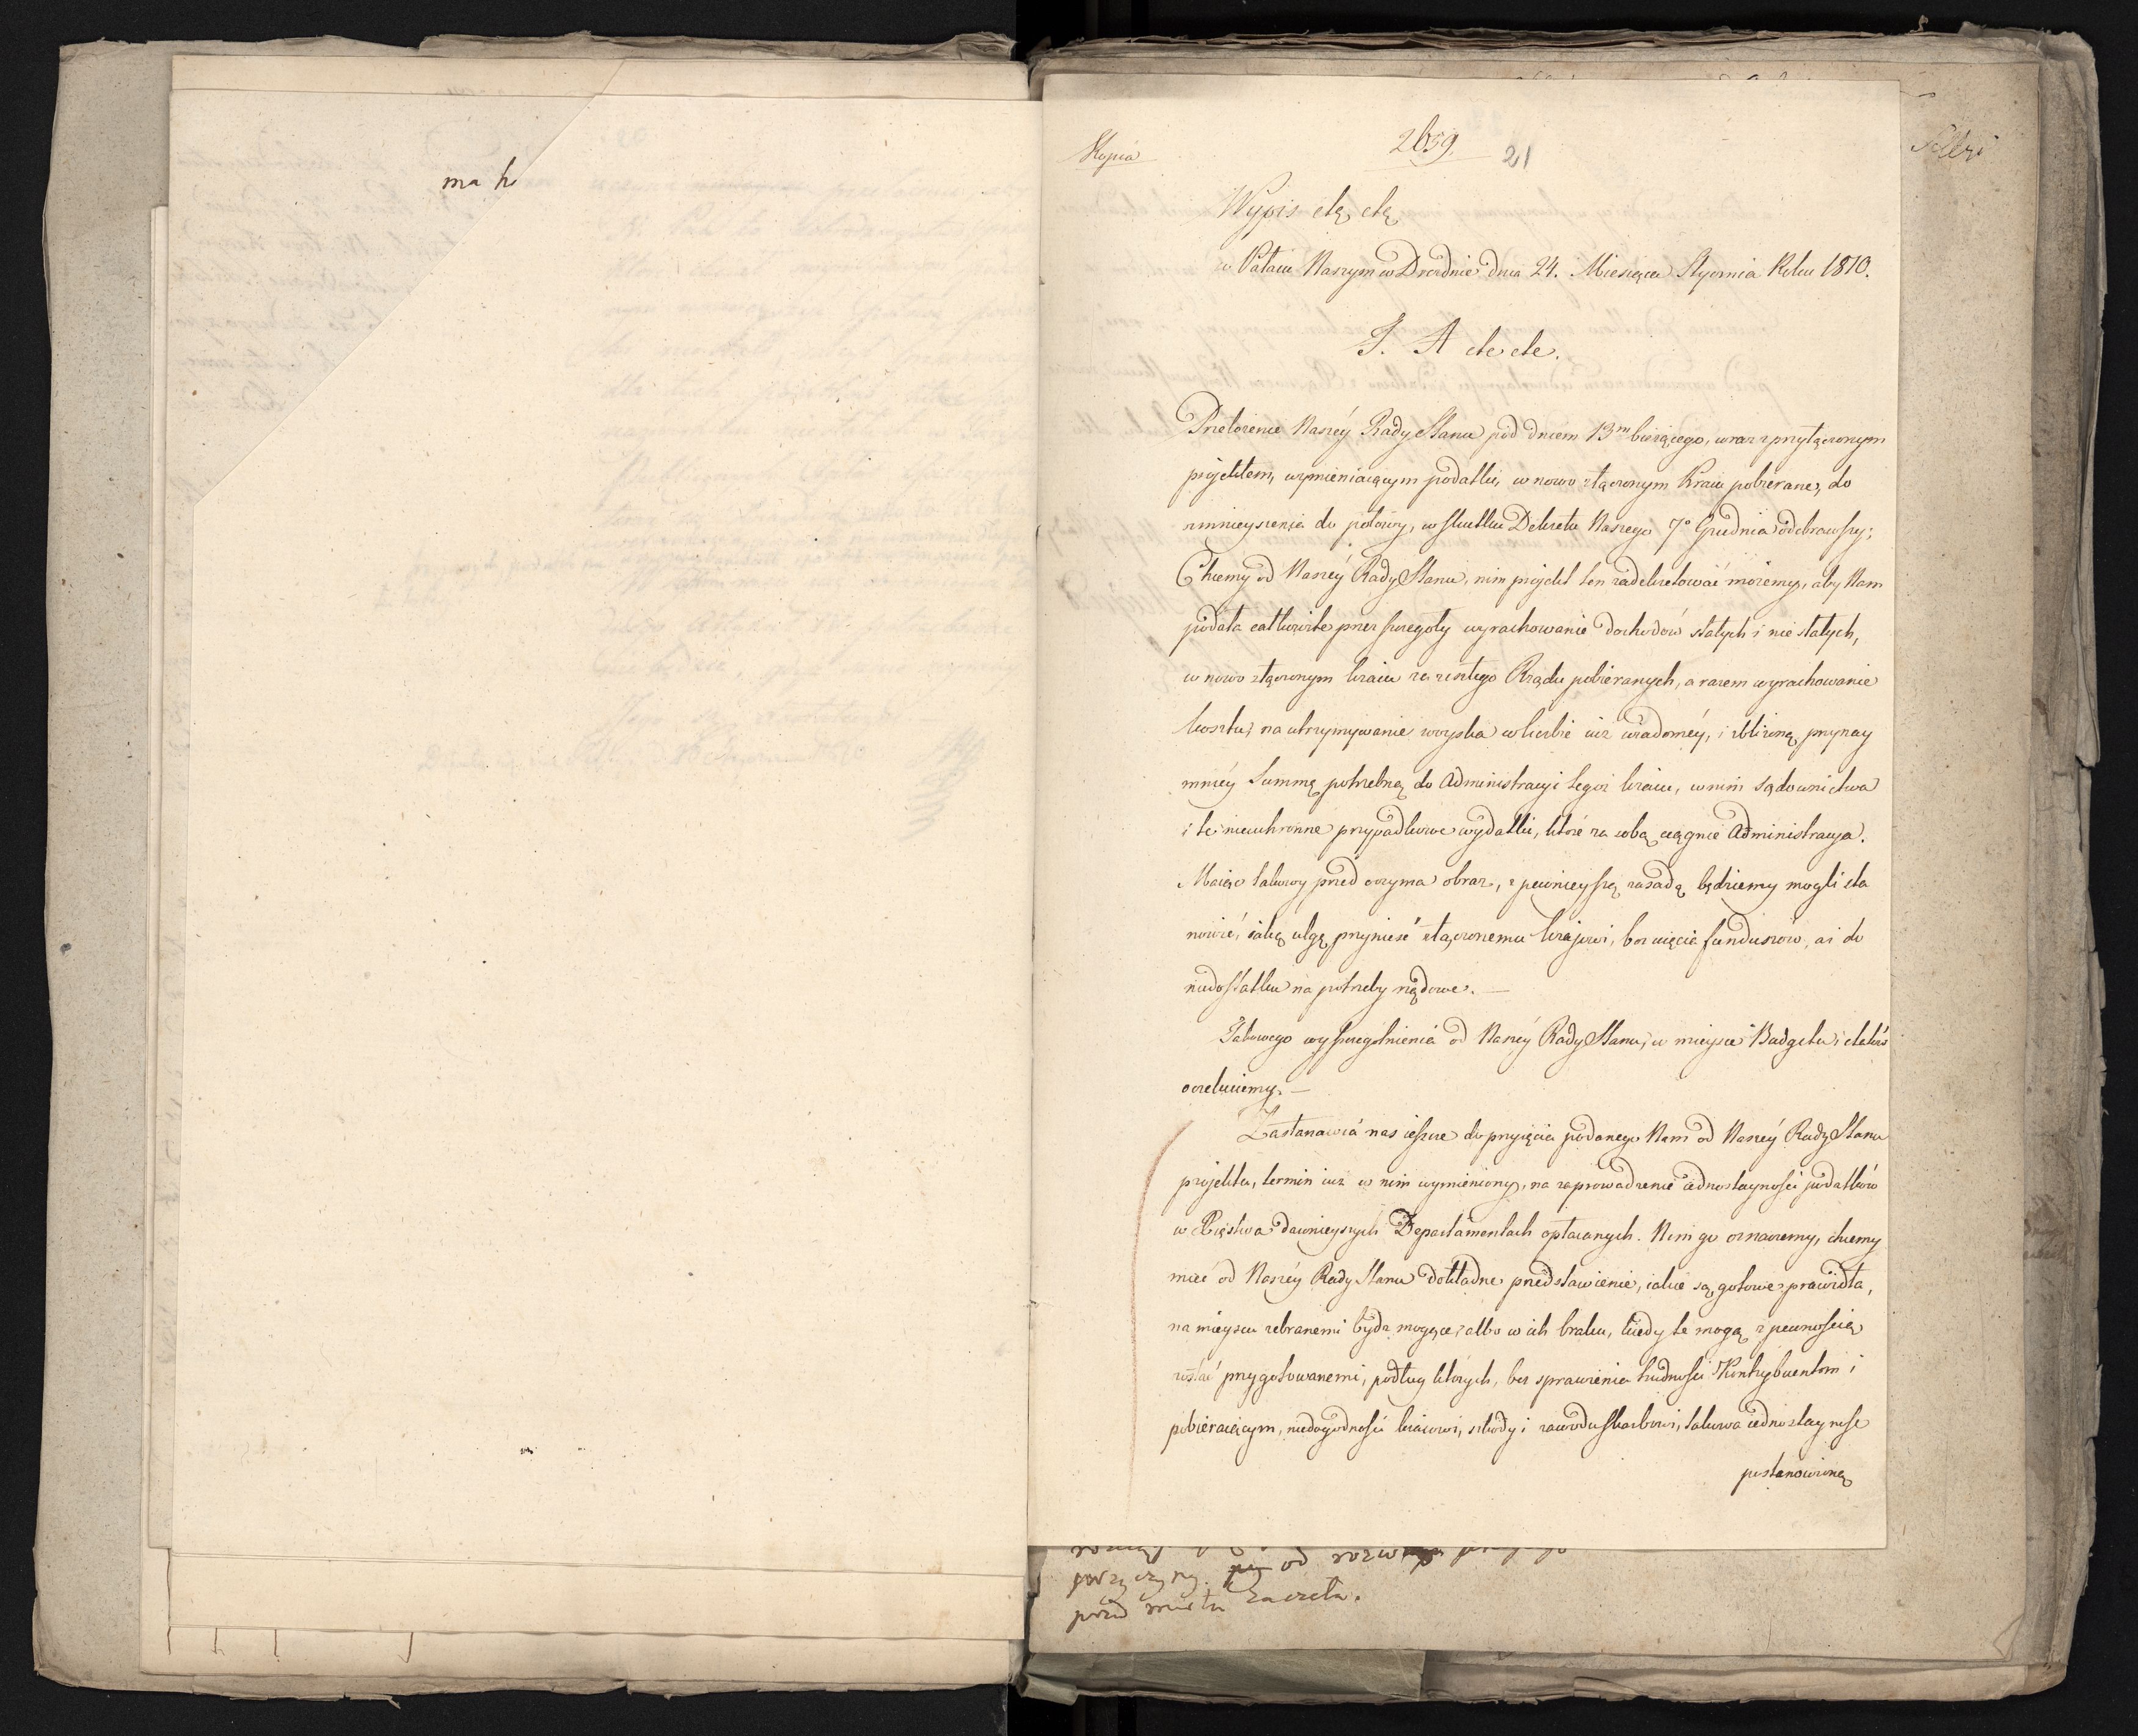 ma
Kopia
2659.
21
Wypis etc etc
w Pałacu Naszym w Dreźnie dnia 24. Miesiąca Stycznia Roku 1810.
F. A etc etc.
Przełożenie Naszéy Rady Stanu pod dniem 13m bieżącego, wraz z przyłączonym
projektem, wymieniaiącym podatki, w nowo złączonym Kraiu pobierane, do
zmnieyszenia do połowy, w skutku Dekretu Naszego 7o Grudnia odebrawszy;
Chcemy od Naszéy Rady Stanu, nim projekt ten zadekretować możemy, aby Nam
podała całkowite przez szczegoły wyrachowanie dochodów stałych i nie stałych,
w nowo złączonym kraiu za zeszłego Rządu pobieranych, a razem wyrachowanie
kosztu, na utrzymywanie woyska w liczbie iuż wiadoméy, i zbliżoną przynay
mniéy Summę potrzebną do Administracyi tegoż kraiu, w nim sądownictwa
i te nieuchronne przypadkowe wydatki, które za sobą ciągnie Administracya.
Maiąc takowy przed oczyma obraz, z pewnieyszą zasadą będziemy mogli sta
nowić, iaką ulgę przynieść złączonemu krajowi, bez ucięcia funduszow, aż do
niedostatku na potrzeby rządowe. —
Takowego wyszczegolnienia od Naszéy Rady Stanu, w mieysce Budgetu i etatów
oczekuiemy. —
Zastanawia nas ieszcze do przyięcia podanego Nam od Naszéy Rady Stanu
projektu, termin iuż w nim wymieniony, na zaprowadzenie iednostayności podatków
w Xięstwa dawnieyszych Departamentach opłacanych. Nim go oznaczemy, chcemy
mieć od Naszéy Rady Stanu dokładne przedstawienie, iakie są gotowe prawidła,
na mieyscu zebranemi bydź mogące, albo w ich braku, kiedy te mogą z pewnością
zostać przygotowanemi, podług których, bez sprawienia trudności Kontrybuentom i
pobieraiącym, niedogodności kraiowi, szkody i zawodu skarbowi, takowa iednostayność
postanowioną
przyczyny. od
przed Zaczęta.